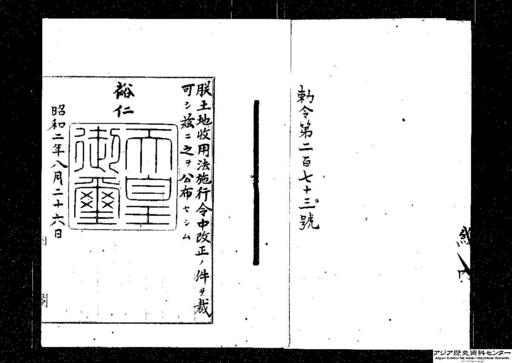 勅令第二百七十三號
朕土地收用法施行令中改正ノ件ヲ裁
可シ茲ニ之ヲ公布セシム
裕仁
天皇
御璽
昭和二年八月二十六日
アジア歴史資料センター
Japan Center for Asian Historical Records